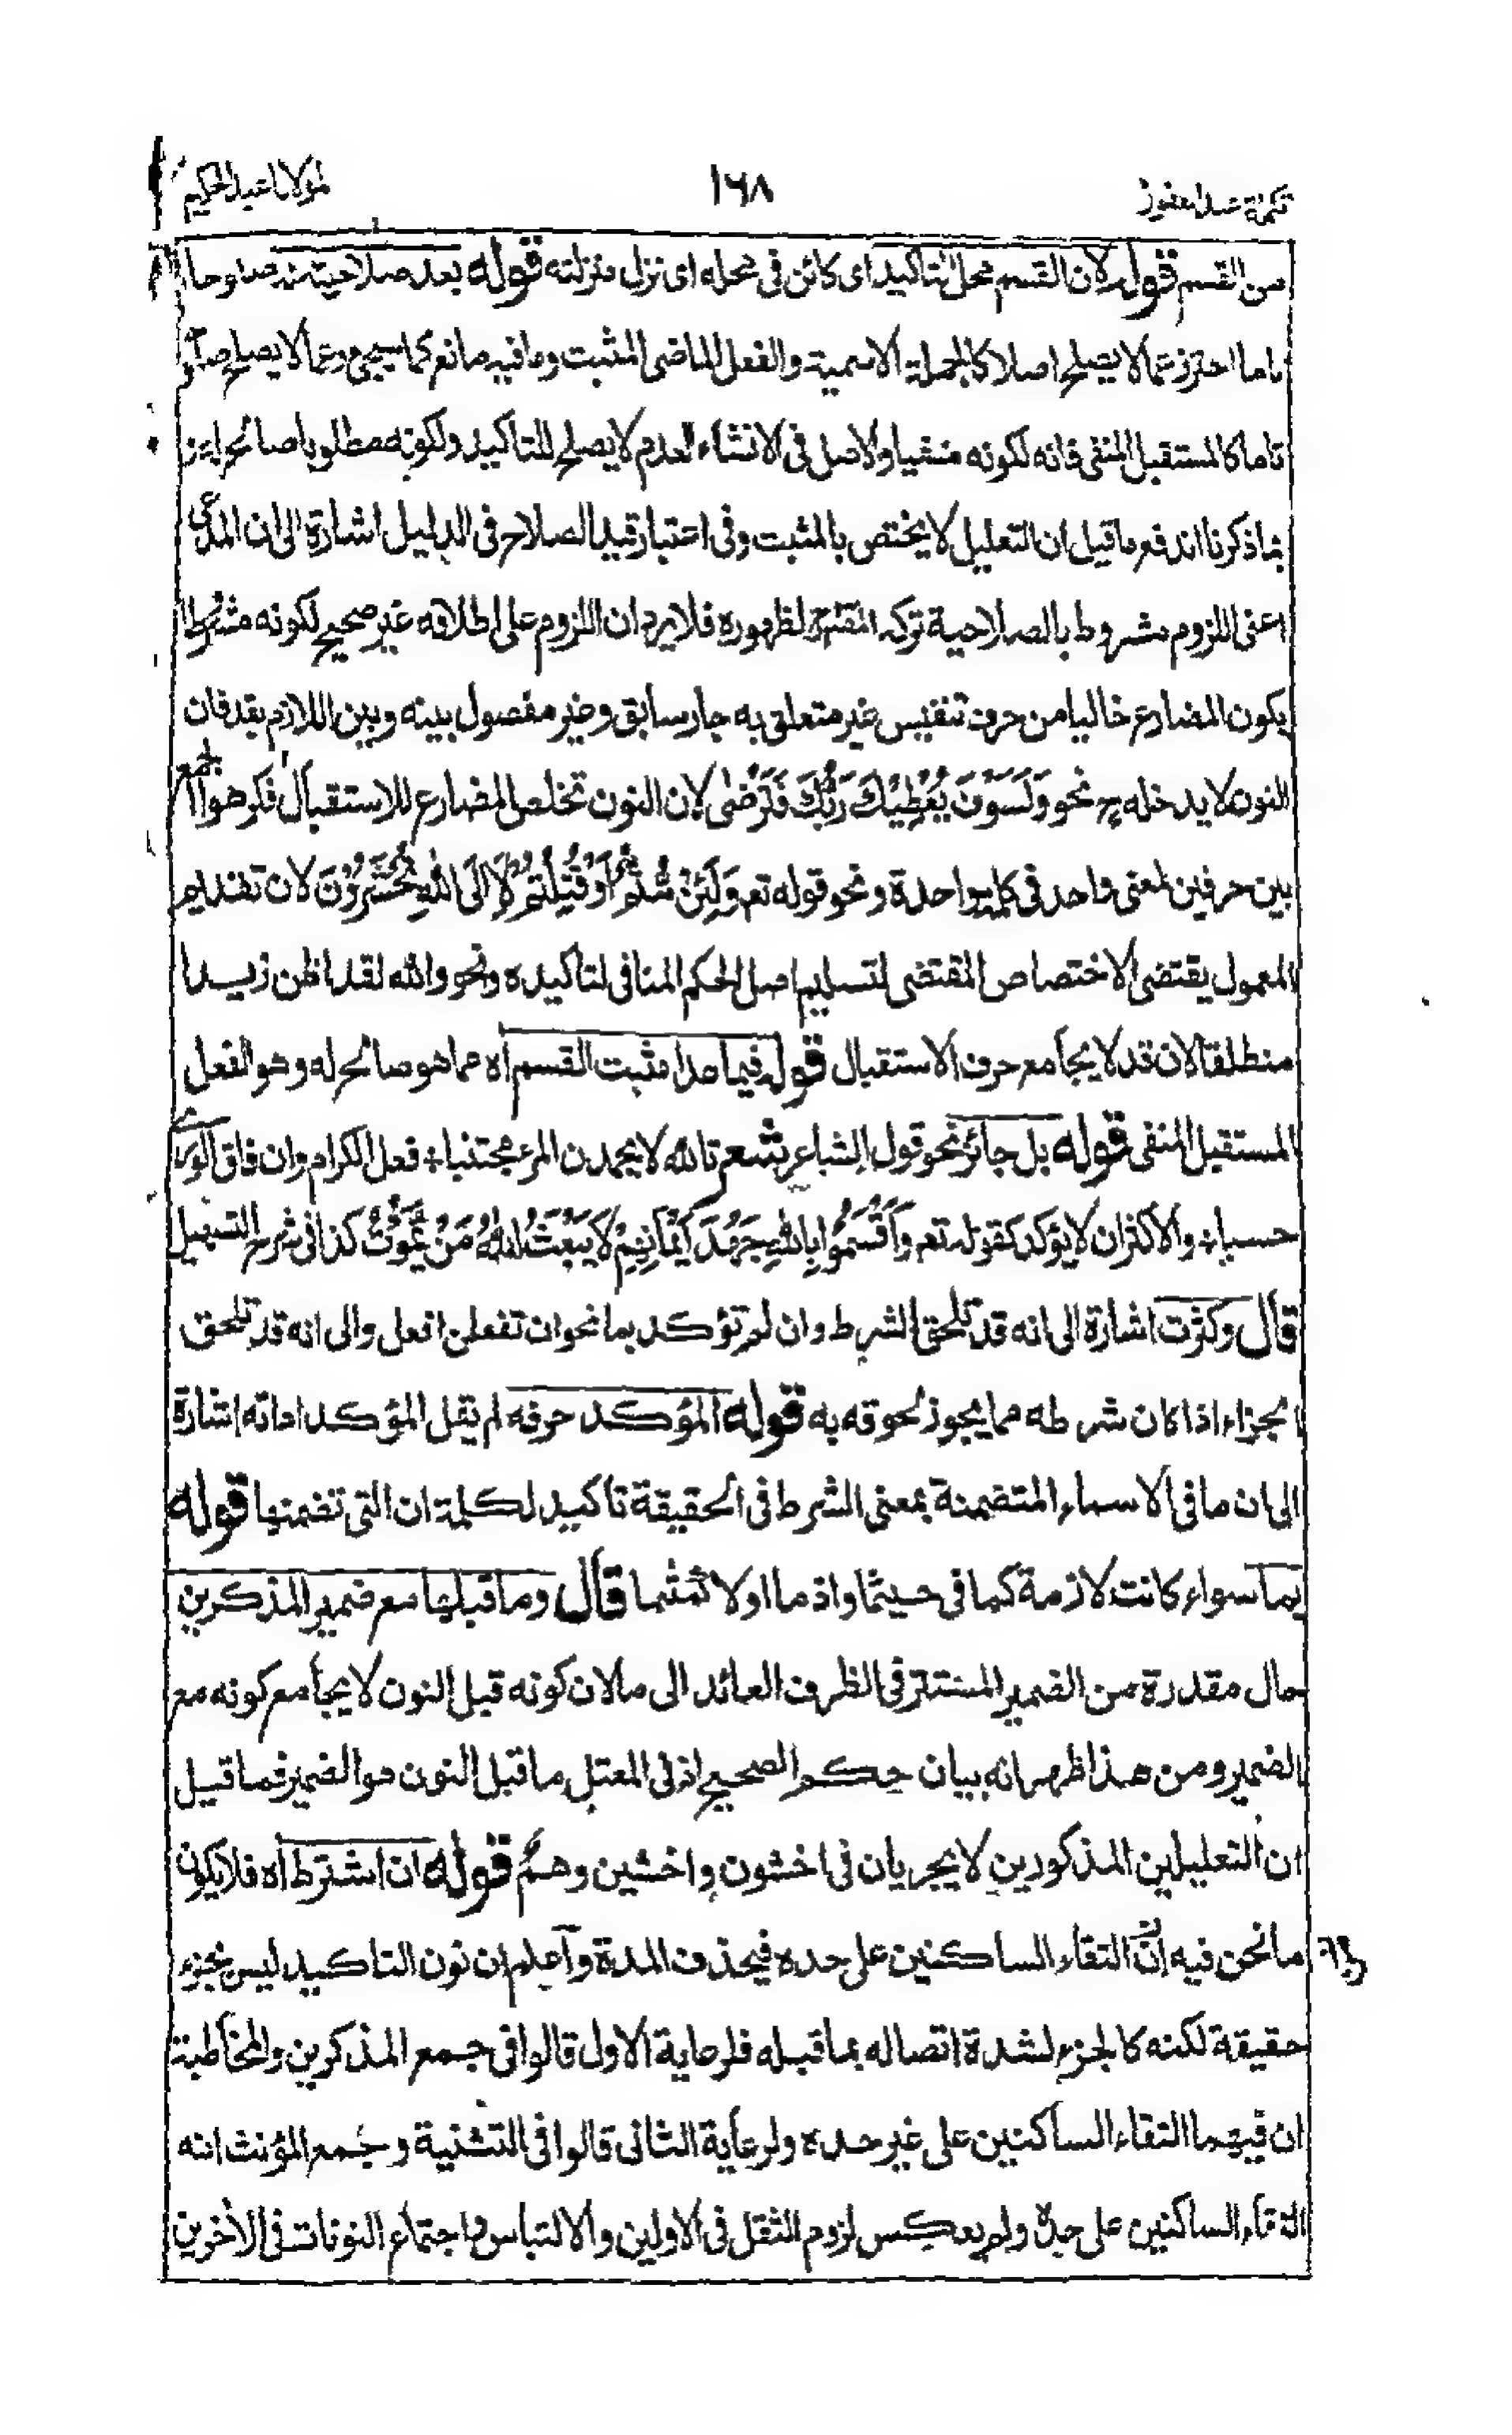 تكملة عبد الغفور ١٦٨ لمولانا عبد الحكيم
من القسم قوله لان القسم محل التاكيد اى كائن فى محله اى نزل منزلته قوله بعد صلاحيته صلوحا
تاما احترز عما لا يصلح اصلا كالجملة الاسمية والفعل الماضى المثبت وما فيه مانع كما سيجئ وعما لا يصلح
تاما كالمستقبل المنفى فانه لكونه منفيا والاصل فى الانتفاء العدم لا يصلح للتاكيد ولكونه مطلوبا صالح له
بما ذكرنا اندفع ما قيل ان التعليل لا يختص بالمثبت وفى اعتبار قيد الصلاح فى الدليل اشارة الى ان المدعى
اعنى اللزوم مشروط بالصلاحية تركه المصنف لظهوره فلا يرد ان اللزوم على اطلاقه غير صحيح لكونه مشروطا
بكون المضارع خاليا من حرف تنفيس غير متعلق به جار سابق وغير مفصول بينه وبين اللازم بقد فان
النون لا يدخله ح نحو وَلَسَوْفَ يُعْطِيْكَ رَبُّكَ فَتَرْضٰى لان النون تخلص المضارع للاستقبال فكرهوا الجمع
بين حرفين لمعنى واحد فى كلمة واحدة ونحو قوله تعم وَلَئِنْ مُّتُّمْ اَوْ قُتِلْتُمْ لَاِلَى اللّٰهِ تُحْشَرُوْنَ لان تقديم
المعمول يقتضى الاختصاص المقتضى لتسليم اصل الحكم المنافى لتاكيده ونحو والله لقد اظن زيدا
منطلقا لان قد لا يجامع حرف الاستقبال قوله فيما عدا مثبت القسم اه عما هو صالح له وهو الفعل
المستقبل المنفى قوله بل جائز نحو قول الشاعر شعر تالله لا يحمدن المرء مجتنبا * فعل الكرام وان فاق الورى
حسبا * والاكثر ان لا يؤكد كقوله تعم وَاَقْسَمُوْا بِاللّٰهِ جَهْدَ اَيْمَانِهِمْ لَا يَبْعَثُ اللّٰهُ مَنْ يَّمُوْتُ كذا فى شرح التسهيل
قال وكثرت اشارة الى انه قد تلحق الشرط وان لم تؤكد بما نحو ان تفعلن افعل والى انه قد تلحق
الجزاء اذا كان شرطه مما يجوز لحوقه به قوله المؤكد حرفه لم يقل المؤكد اداته اشارة
الى ان ما فى الاسماء المتضمنة بمعنى الشرط فى الحقيقة تاكيد لكلمة ان التى تضمنها قوله
بما سواء كانت لازمة كما فى حيثما واذ ما اولا قال وما قبلها مع ضمير المذكرين
حال مقدرة من الضمير المستتر فى الظرف العائد الى ما لان كونه قبل النون لا يجامع كونه مع
الضمير ومن هذا ظهر انه بيان حكم الصحيح اذ فى المعتل ما قبل النون هو الضمير فما قيل
ان التعليلين المذكورين لا يجريان فى اخشون واخشين وهم قوله ان اشترط اه فلا يكون
ما نحن فيه ان التقاء الساكنين على حده فيحذف المدة واعلم ان نون التاكيد ليس بجزء
حقيقة لكنه كالجزء لشدة اتصاله بما قبله فلرعاية الاول قالوا فى جمع المذكرين والمخاطبة
ان فيهما التقاء الساكنين على غير حده ولرعاية الثانى قالوا فى التثنية وجمع المؤنث انه
التقاء الساكنين على حده ولم يعكس لزوم الثقل فى الاولين والالتباس واجتماع النونات فى الاخرين